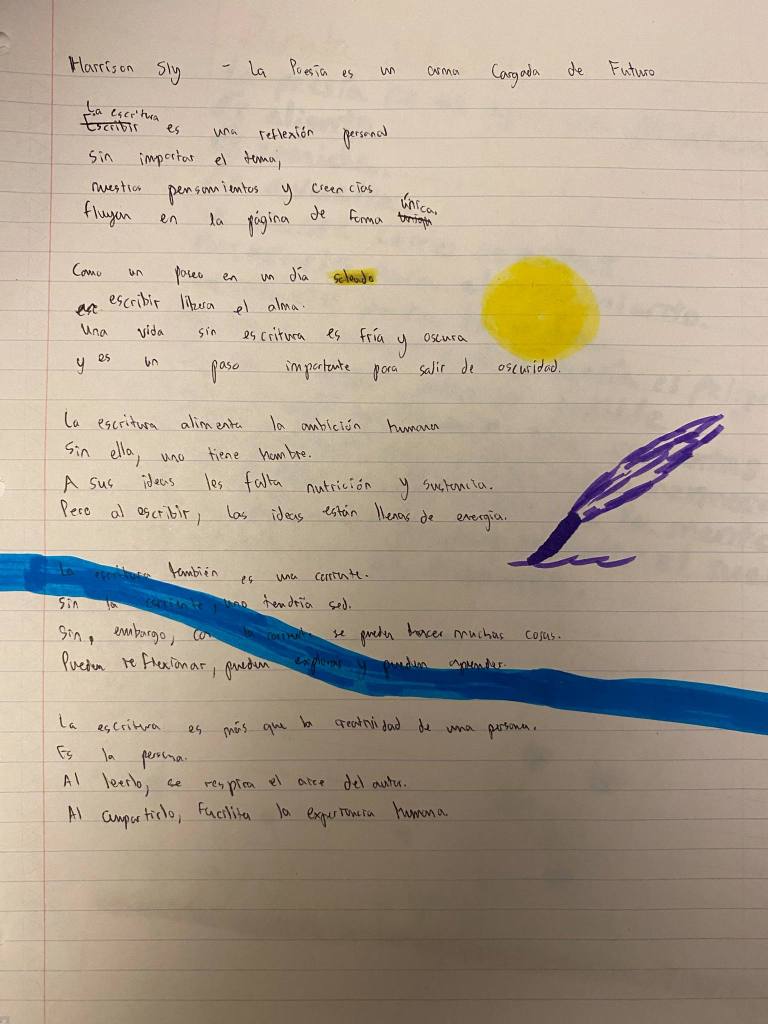 Harrison Sly - La Poesía es un arma Cargada de Futuro
La escritura
Escribir es una reflexión personal
sin importar el tema,
nuestros pensamientos y creencias
única.
fluyan en la página de forma
Como un paseo en un día soleado
escribir libera el alma.
Una vida sin escritura es fría y oscura
y es un paso importante para salir de oscuridad.
La escritura alimenta la ambición humana
Sin ella, uno tiene hambre.
A sus ideas les falta nutrición y sustancia.
Pero al escribir, las ideas están llenas de energía.
La escritura también es una corriente.
Sin la corriente, uno tendría sed.
Sin, embargo, con la corriente se pueden hacer muchas cosas.
Pueden reflexionar, pueden explorar y pueden aprender.
La escritura es más que la creatividad de una persona.
Es la persona.
Al leerlo, se respira el aire del autor.
Al compartirlo, facilita la experiencia humana.